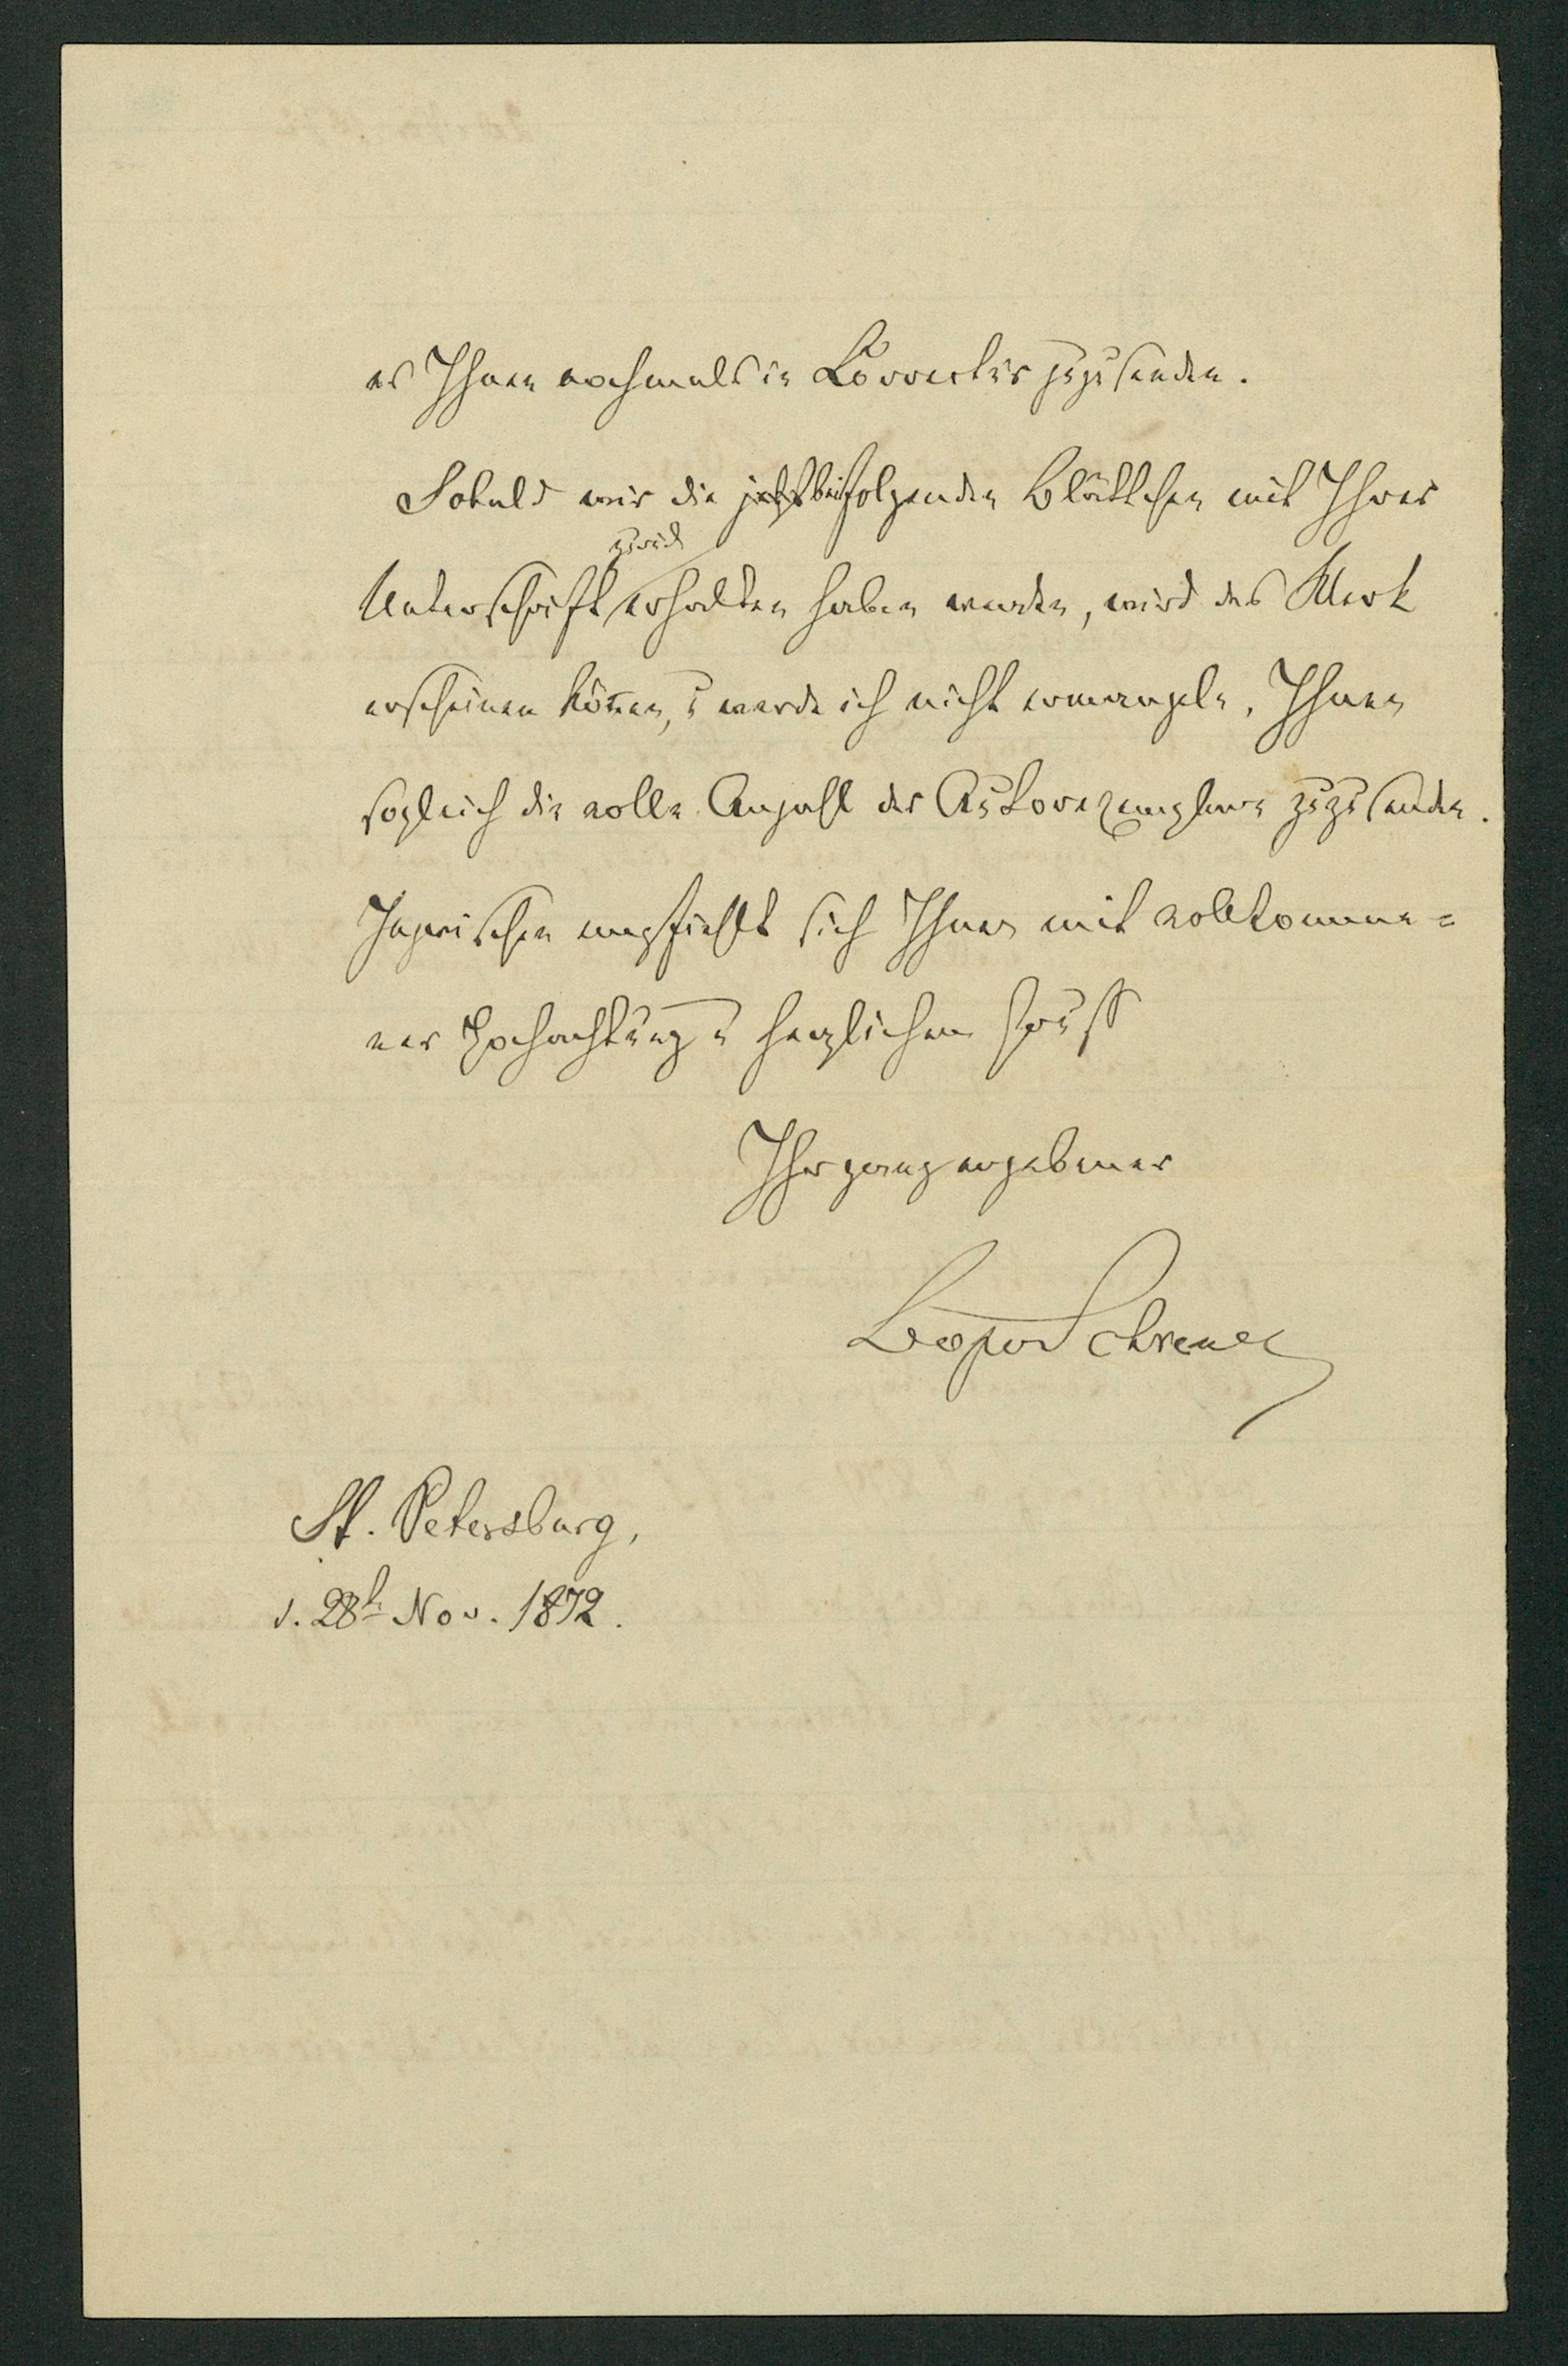 es Ihnen nochmals in Correctur zuzusenden.
Sobald wir die beifolgenden Blättchen mit Ihrer
zurück
Unterschrift erhalten haben werden, wird das Werk
erscheinen können, u werde ich nicht ermangeln, Ihnen
sogleich die volle Anzahl der Autorexemplare zuzusenden.
Inzwischen empfiehlt sich Ihnen mit vollkomme-
ner Hochachtung u herzlichem Gruß
Ihr ganz ergebener
Leopold Schrenck
St. Petersburg,
d. 28t Nov. 1872.